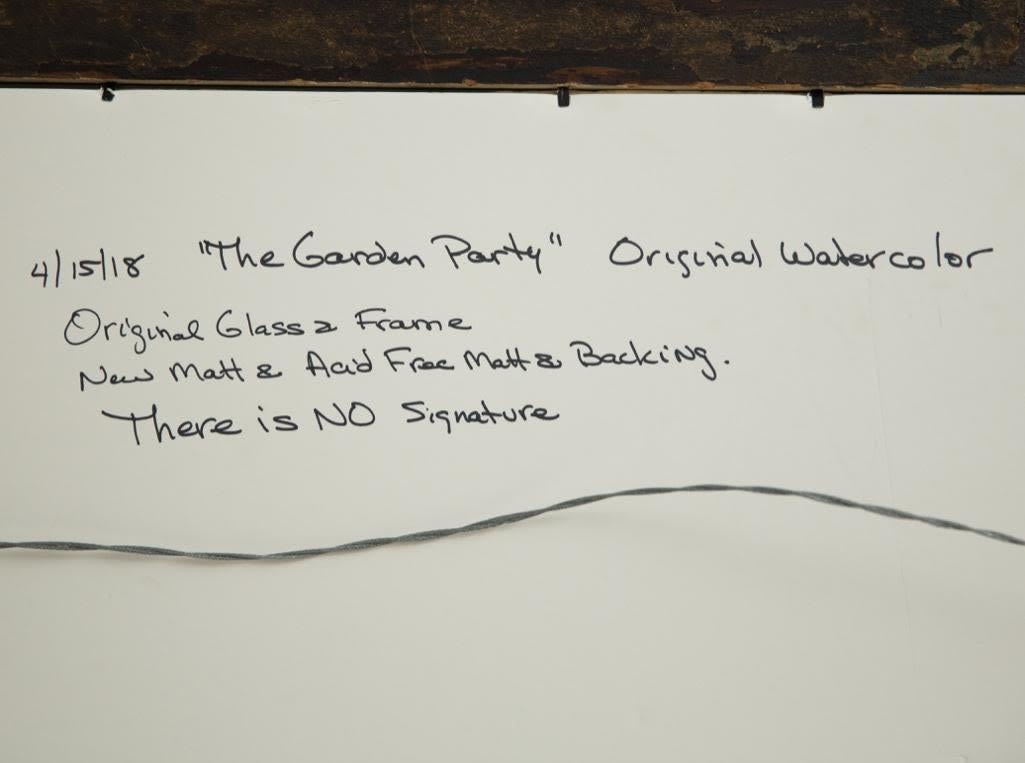 4/15/18 "The Garden Party" Original Watercolor
Original Glass & Frame
New Matt & Acid Free Matt & Backing.
There is NO Signature